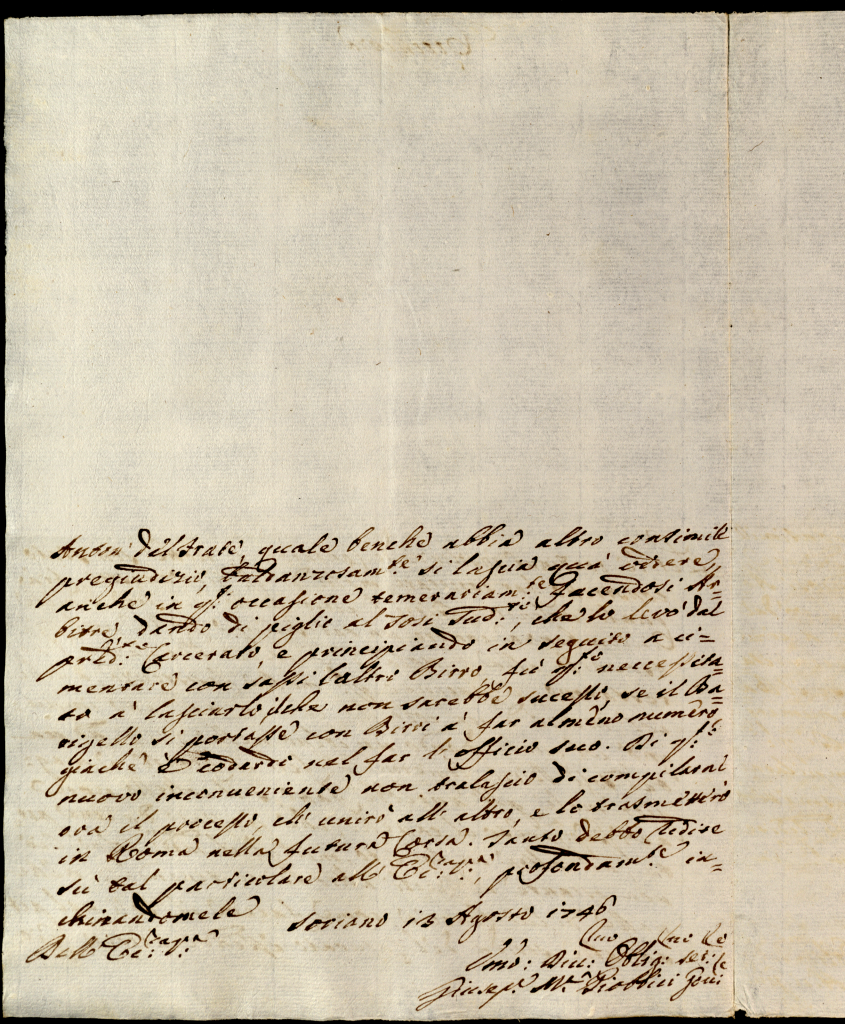 Anton' del Frate, quale benche abbia altro consimile
pregiudizio, baldanzosam.te si lascia quà vedere,
anche in q.sta occasione temerariam.te facendosi Ar-
bitro, dando di piglio al che lo levò dal
pred.to Carcerato, e principiando in seguito a ci-
mentare con sassi l'altri Birro, fù q.sto neccessita-
to à lasciarlo, il che non sarebbe sucesso, se il Ba-
rigello si portasse con Birri à far almeno numero
giachè è codardo nel far l'officio suo. Di q.sto
nuovo inconveniente non tralascio di compilarne
ora il processo, ch'unirò all'altro, e lo trasmetterò
in Roma nella futura Corsa. Tanto debbo ridire
sù tal particolare all' profondam.te in-
chinandomele Soriano 13 Agosto 1746
Dell'
Umo: Div: Oblig:
Giusep.e M.a